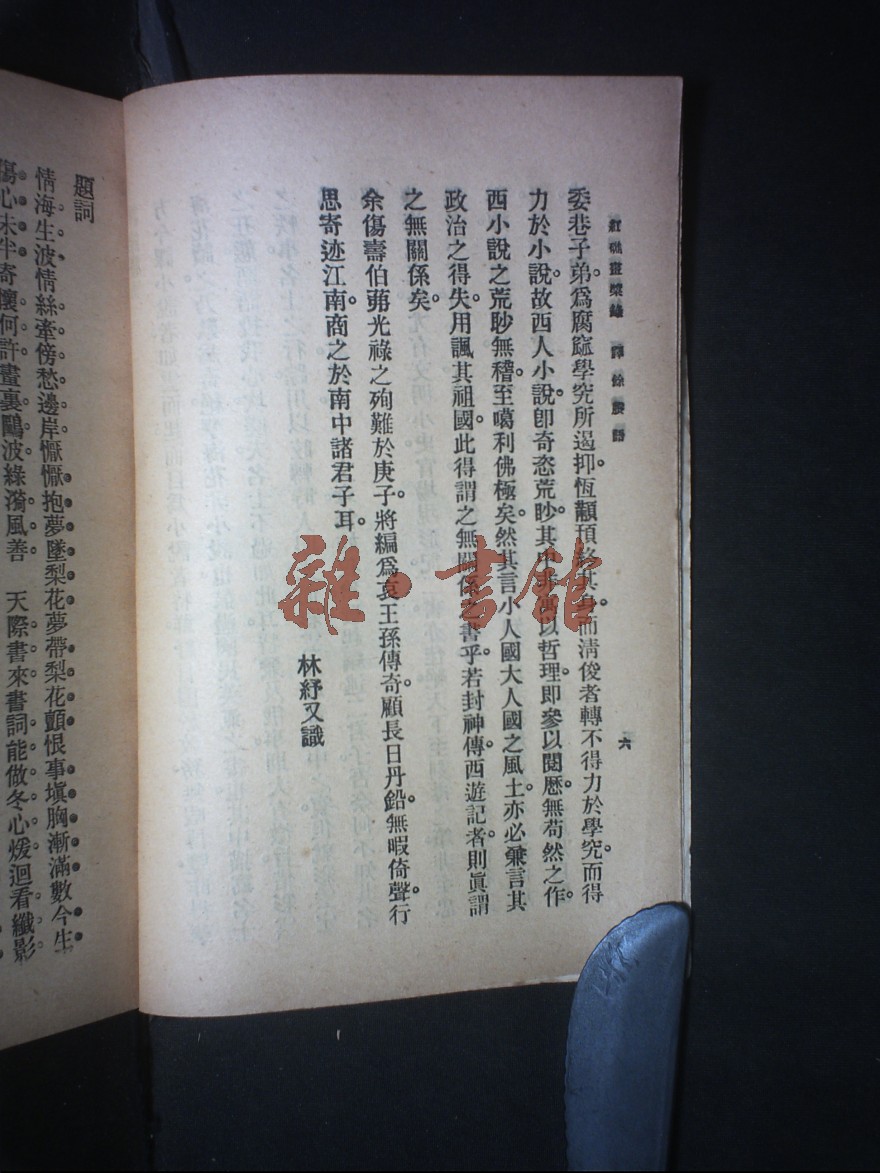 紅礁畫槳錄 譯餘賸語
六
委巷子弟。爲腐窳學究所遏抑。恆顢頇終其身。而清俊者轉不得力於學究。而得
力於小說。故西人小說。卽奇恣荒眇。其中非寓以哲理。卽參以閱歷。無苟然之作。
西小說之荒眇無稽。至噶利佛極矣。然其言小人國大人國之風土。亦必兼言其
政治之得失。用諷其祖國。此得謂之無關係之書乎。若封神傳西遊記者。則眞謂
之無關係矣。
余傷壽伯茀光祿之殉難於庚子。將編爲哀王孫傳奇。顧長日丹鉛。無暇倚聲。行
思寄迹江南。商之於南中諸君子耳。
林紓又識
題詞
情海生波情絲牽傍愁邊岸懨懨抱夢墜梨花夢帶梨花顫恨事塡胸漸滿數今生
傷心未半寄懷何許畫裏鷗波綠漪風善 天際書來書詞能做冬心煖迴看纖影
雜·書館